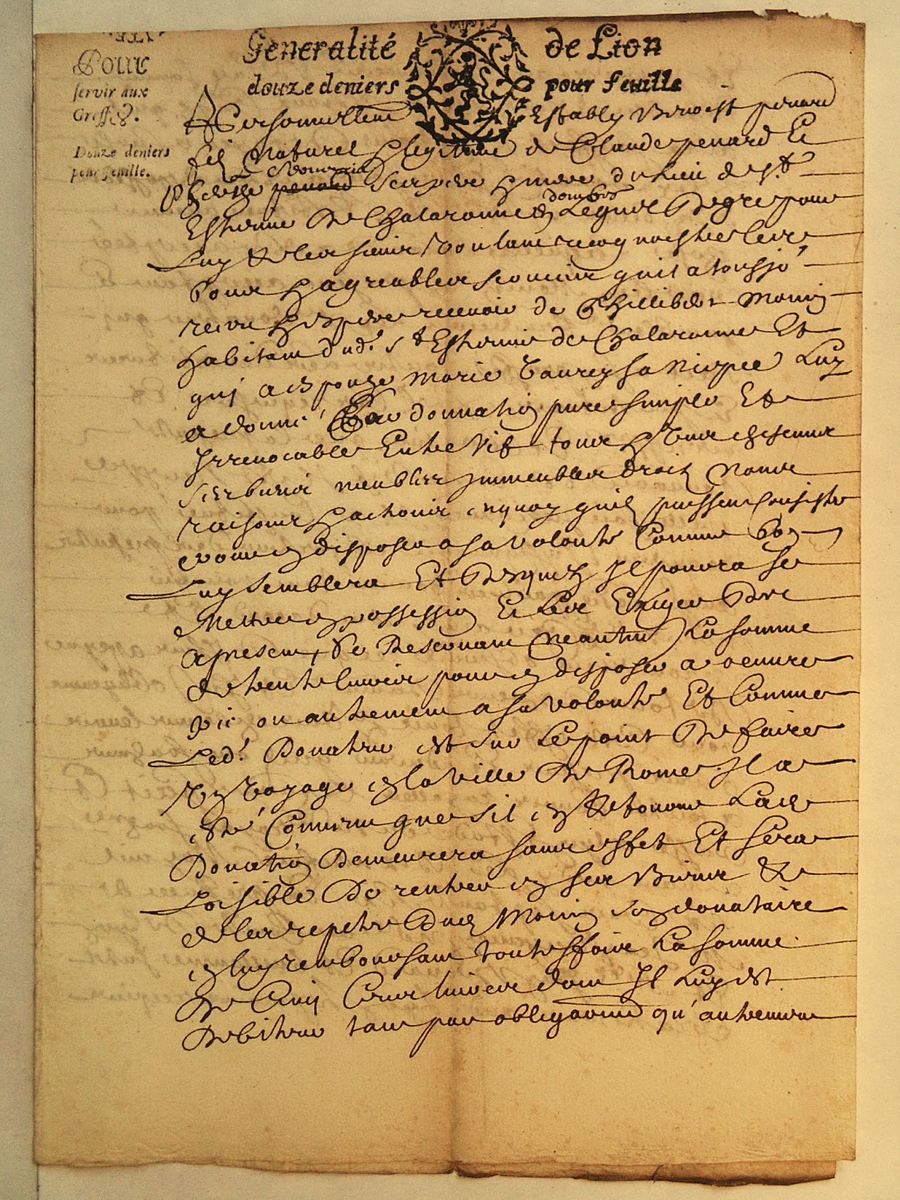 Pour
servir aux
Greffes.
Douze deniers
pour feuille.
Generalité de Lion
douze deniers pour feuille
Personnellem establys Benoist penard
filz naturel & legitime de Claude penard Et
penard ses pere & mere du lieu de st
Esthienne De Chalaronne Dombes de gré pour
Luy & les siens voulant recognoistre les
Bons & agreables services quil a tousjo
receu & espere recevoir de Phillibert Monin
habitant dud. st Esthienne de Chalaronne Et
qui a espouze Marie sa Niepce Luy
a donné Par donnation pure simple Et
Irrevocable Entre Vifs tous & Ungs chescuns
ses biens meubles immeubles droictz Noms
raisons & actions en quoy quilz puissent Consister
pour en disposer a sa volonté Comme bon
Luy semblera Et Desquelz Il pourra se
Mettre en possession Et les Exiger Des
apresent, se Reservant Neantm La somme
de trente livres pour en disposer a oeuvre
pie ou autrement a sa volonté Et Comme
Led. Donateur est sur le point De faire
Un Voyage en la ville De Rome Il a
esté Convenu que sil en Retourne Lade
Donation Demeurera sans effet Et sera
Loisible De rentrer en ses Biens &
de les repeter Dud Monin son donataire
en luy remboursant touteffois La somme
De Cinq Cens livres dont Il Luy est
Debiteur tant par obligation qu'autrement